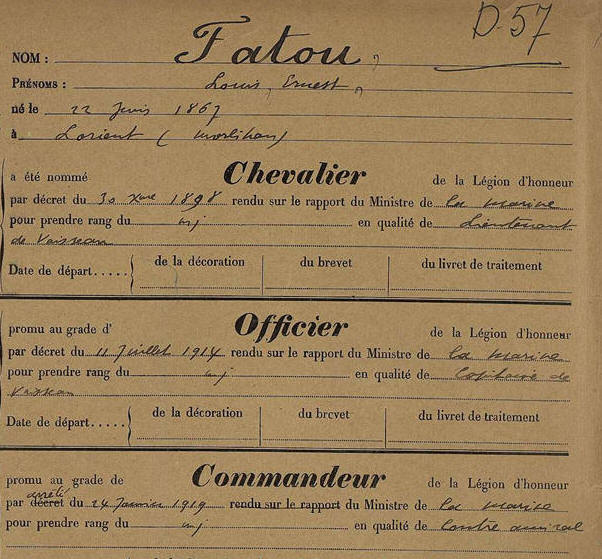 D.57
NOM : Fatou,
PRÉNOMS : Louis, Ernest,
né le 22 Juin 1867
à Lorient (Morbihan)
a été nommé Chevalier de la Légion d'honneur
par décret du 30 Xbre 1898 rendu sur le rapport du Ministre de la Marine
pour prendre rang du mj en qualité de Lieutenant
de Vaisseau
Date de départ..... de la décoration du brevet du livret de traitement
promu au grade d' Officier de la Légion d'honneur
par décret du 11 Juillet 1914 rendu sur le rapport du Ministre de la Marine
pour prendre rang du mj en qualité de Capitaine de
Vaisseau
Date de départ..... de la décoration du brevet du livret de traitement
promu au grade de Commandeur de la Légion d'honneur
arrêté
par décret du 24 Janvier 1919 rendu sur le rapport du Ministre de la Marine
pour prendre rang du mj en qualité de Contre amiral